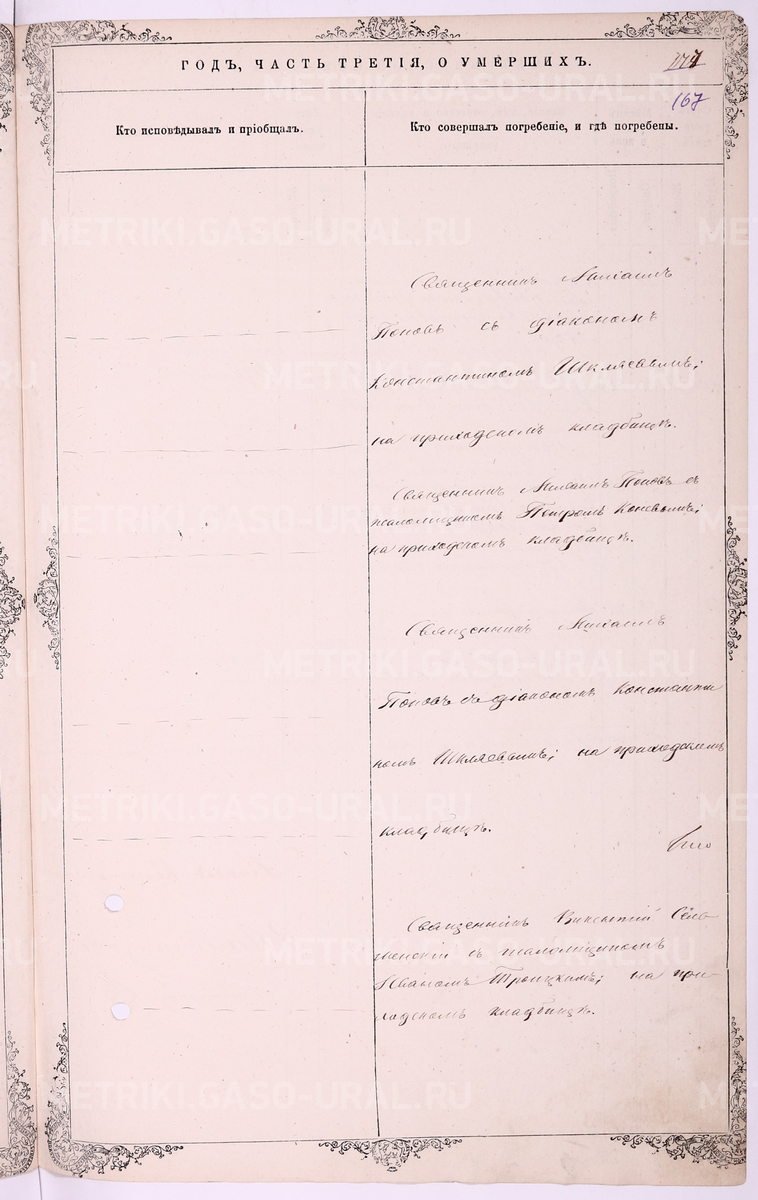 ГОДЪ, ЧАСТЬ ТРЕТІЯ, О УМЕРШИХЪ.
167
Кто исповѣдывалъ и пріобщалъ.
Кто совершалъ погребеніе, и гдѣ погребены.
METRIKI.GASO-URAL.RU
Священникъ Михаилъ
Поповъ съ діакономъ
Константиномъ Шкляевымъ;
на приходскомъ кладбищѣ.
Священникъ Михаилъ Поповъ съ
псаломщикомъ Петромъ Коневымъ;
на приходскомъ кладбищѣ.
Священникъ Михаилъ
Поповъ съ діакономъ Константи
номъ Шкляевымъ; на приходскомъ
кладбищѣ.
Священникъ Викентій
съ псаломщикомъ
Иваномъ Троицкимъ; на при-
ходскомъ кладбищѣ.